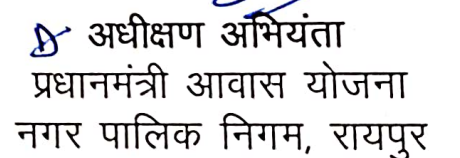 अधीक्षण अभियंता
प्रधानमंत्री आवास योजना
नगर पालिक निगम, रायपुर